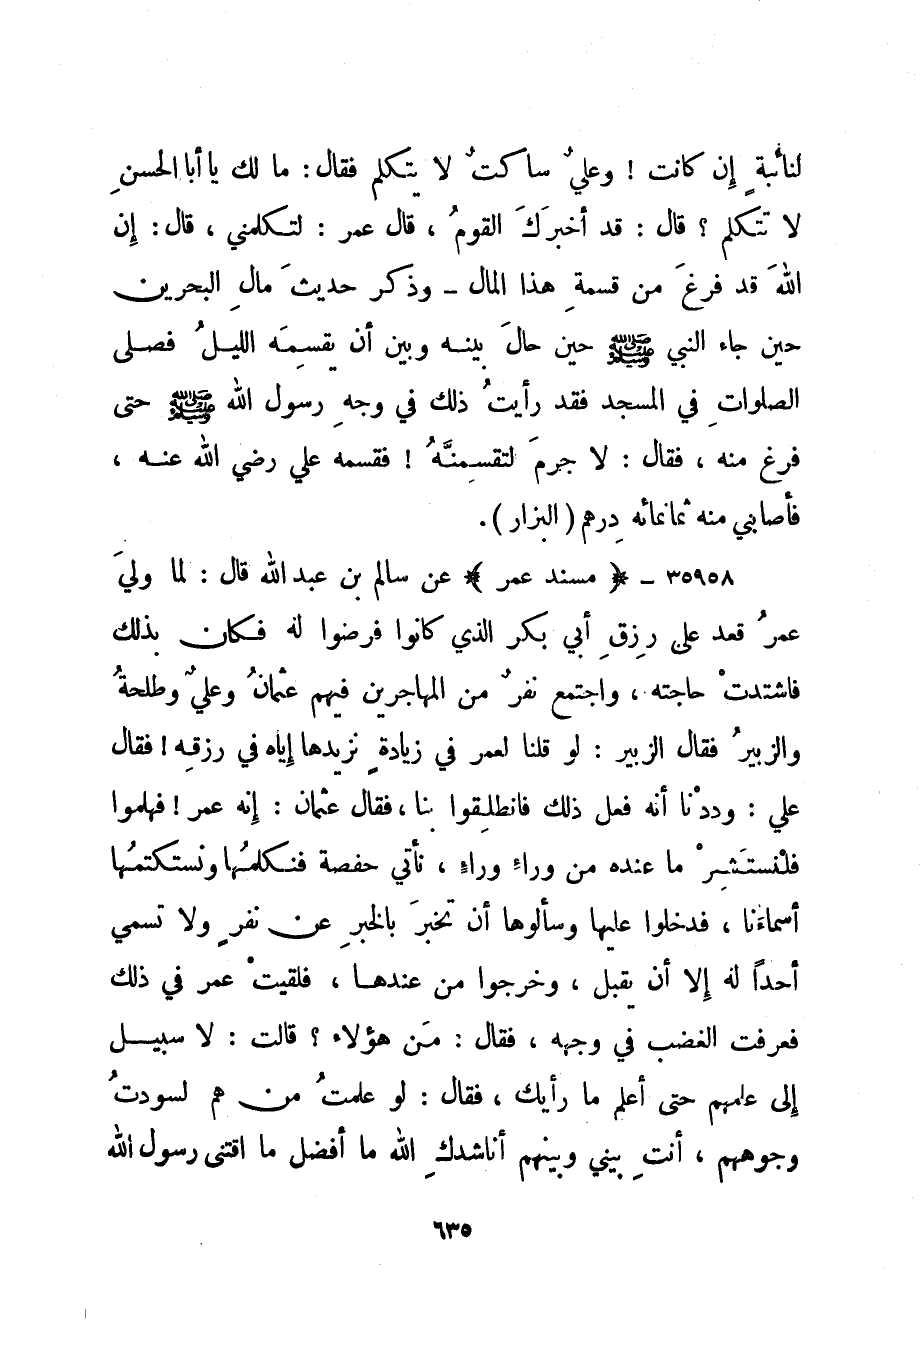 لنائبةٍ إن كانت ! وعليٌ ساكتٌ لا يتكلم فقال : ما لك يا أبا الحسنِ
لا تتكلم ؟ قال : قد أخبرَكَ القومُ ، قال عمر : لتكلمني ، قال : إن
اللهَ قد فرغَ من قسمةِ هذا المال - وذكر حديثَ مالِ البحرين
حين جاء النبي ﷺ حين حالَ بينه وبين أن يقسِمَه الليلُ فصلى
الصلواتِ في المسجد فقد رأيتُ ذلك في وجهِ رسول الله ﷺ حتى
فرغ منه ، فقال : لا جرمَ لتقسِمنَّهُ ! فقسمه علي رضي الله عنه ،
فأصابني منه ثمانمائه درهم ( البزار ) .
٣٥٩٥٨ - ﴿ مسند عمر ﴾ عن سالم بن عبد الله قال : لما وليَ
عمرُ قعد على رزقِ أبي بكر الذي كانوا فرضوا له فكان بذلك
فاشتدتْ حاجته ، واجتمع نفرٌ من المهاجرين فيهم عثمانُ وعليٌ وطلحةُ
والزبيرُ فقال الزبير : لو قلنا لعمر في زيادةٍ نزيدها إياه في رزقه ! فقال
علي : وددْنا أنه فعل ذلك فانطلقوا بنا ، فقال عثمان : إنه عمر ! فهلموا
فلْنستَشِرْ ما عنده من وراءِ وراءٍ ، نأتي حفصة فنكلمُها ونستكتمُها
أسماءَنا ، فدخلوا عليها وسألوها أن تخبرَ بالخبرِ عن نفرٍ ولا تسمي
أحداً له إلا أن يقبل ، وخرجوا من عندها ، فلقيتْ عمر في ذلك
فعرفت الغضب في وجهه ، فقال : مَن هؤلاء ؟ قالت : لا سبيل
إلى علمهم حتى أعلم ما رأيك ، فقال : لو علمتُ من هم لسودتُ
وجوههم ، أنتِ بيني وبينهم أناشدكِ الله ما أفضل ما اقتنى رسول الله
٦٣٥